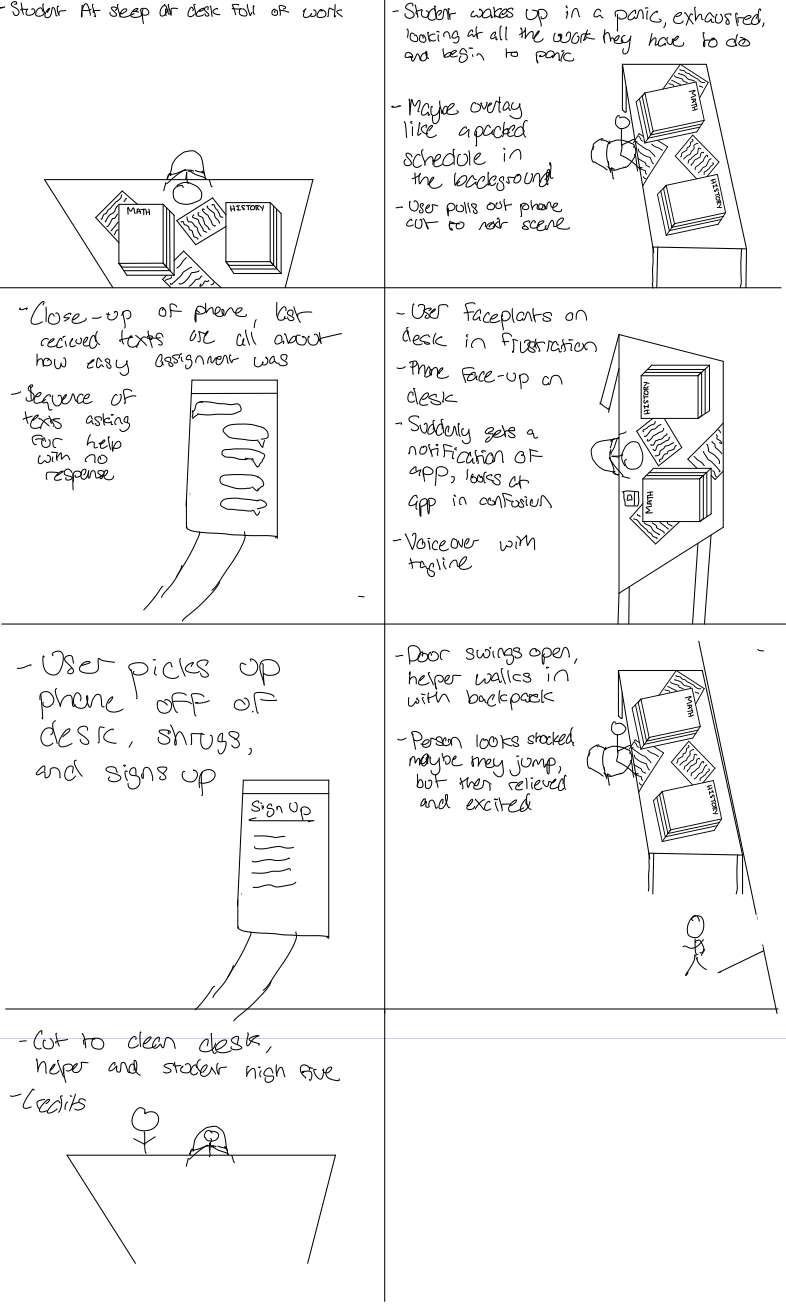 - Student At sleep at desk full of work
MATH
HISTORY
- Student wakes up in a panic, exhausted,
looking at all the work they have to do
and begin to panic
- Maybe overlay
like a packed
schedule in
the background
- User pulls out phone
cut to next scene
MATH
HISTORY
- Close-up of phone, last
recieved texts are all about
how easy assignment was
- Sequence of
texts asking
for help
with no
response
- User faceplants on
desk in frustration
- Phone face-up on
desk
- Suddenly gets a
notification of
app, looks at
app in confusion
- Voiceover with
tagline
HISTORY
MATH
- User picks up
phone off of
desk, shrugs,
and signs up
Sign Up
- Door swings open,
helper walks in
with backpack
- Person looks shocked
maybe they jump,
but then relieved
and excited
MATH
HISTORY
- Cut to clean desk,
helper and student high five
- Credits